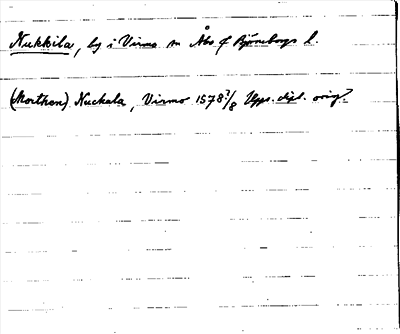 Nukkila, by i Virmo sn Åbo o Björneborgs l.
(Morthen) Nuckala, Virmo 1578 7/8 Upps. dipl. orig.